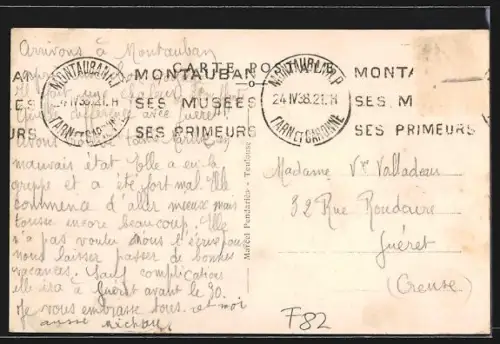 Arrivons à Montauban
CARTE POSTALE
MONTAUBAN
SES MUSÉES
SES PRIMEURS
MONTAUBAN R.P.
24 IV 38.21.H
TARN ET GARONNE
MONTA
SES M
SES PRIMEURS
il fait une chaleur
Quelle différence avec Guéret
Avons
mauvais état. Elle a eu la
grippe et a été fort mal. Elle
commence d'aller mieux mais
tousse encore beaucoup. Elle
n'a pas voulu nous l'écrire pour
nous laisser passer de bonnes
vacances. Sauf complications
elle ira à Guéret avant le 30.
Je vous embrasse tous. et moi
aussi
Marcel Pendaries - Toulouse
Madame Vve Valladeau
32 Rue Roudaire
Guéret
(Creuse)
F82